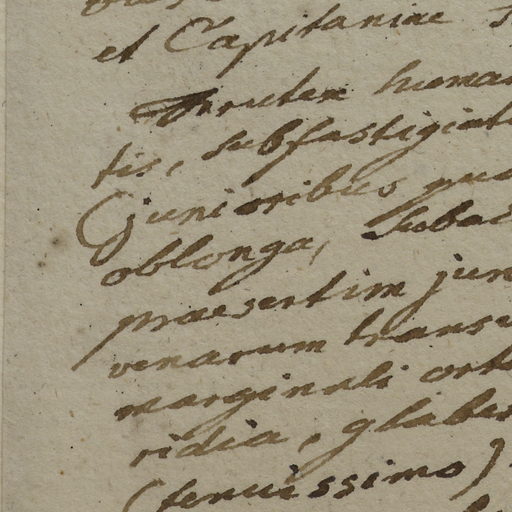 et Capitaniae
Frutex human
tis, subfastigiat
(junioribus qua
oblonga, subac
praesertim jun
venarum transv
marginali ort
ridia, glaber
(tenuissimo)